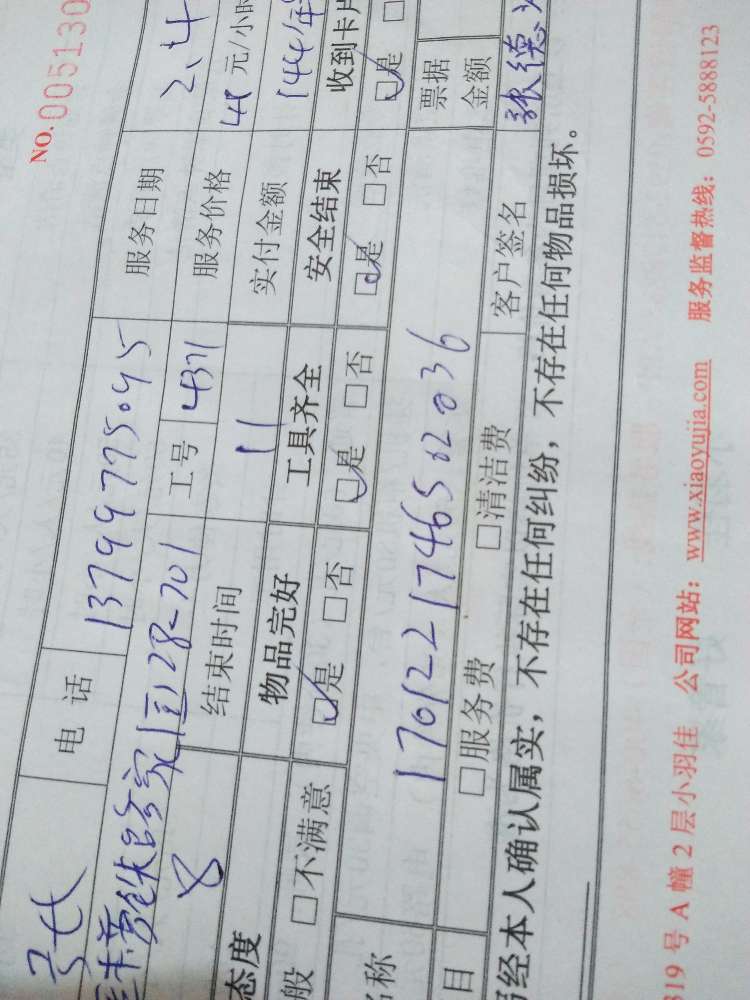 NO.005130
张 电 话 13799775095 服务日期 2.4
28-701 工号 4371 服务价格 48 元/小时
8 结束时间 11 实付金额 144
态度 物品完好 工具齐全 安全结束 收到卡片
般 □不满意 □是 □否 □是 □否 □是 □否 □是 □
名称 1701221746502036 票据金额
目 □服务费 □清洁费 客户签名 张德
经本人确认属实，不存在任何纠纷，不存在任何物品损坏。
319 号 A 幢 2 层小羽佳 公司网站：www.xiaoyujia.com 服务监督热线：0592-5888123